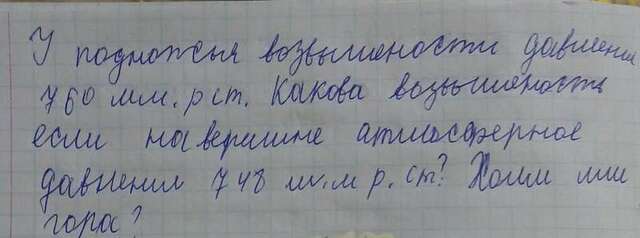 У подножья возвышености давления
760 мм. рст. Какова возвышеность
если на вершине атмосферное
давления 748 м.м р.ст? Холм или
гора?